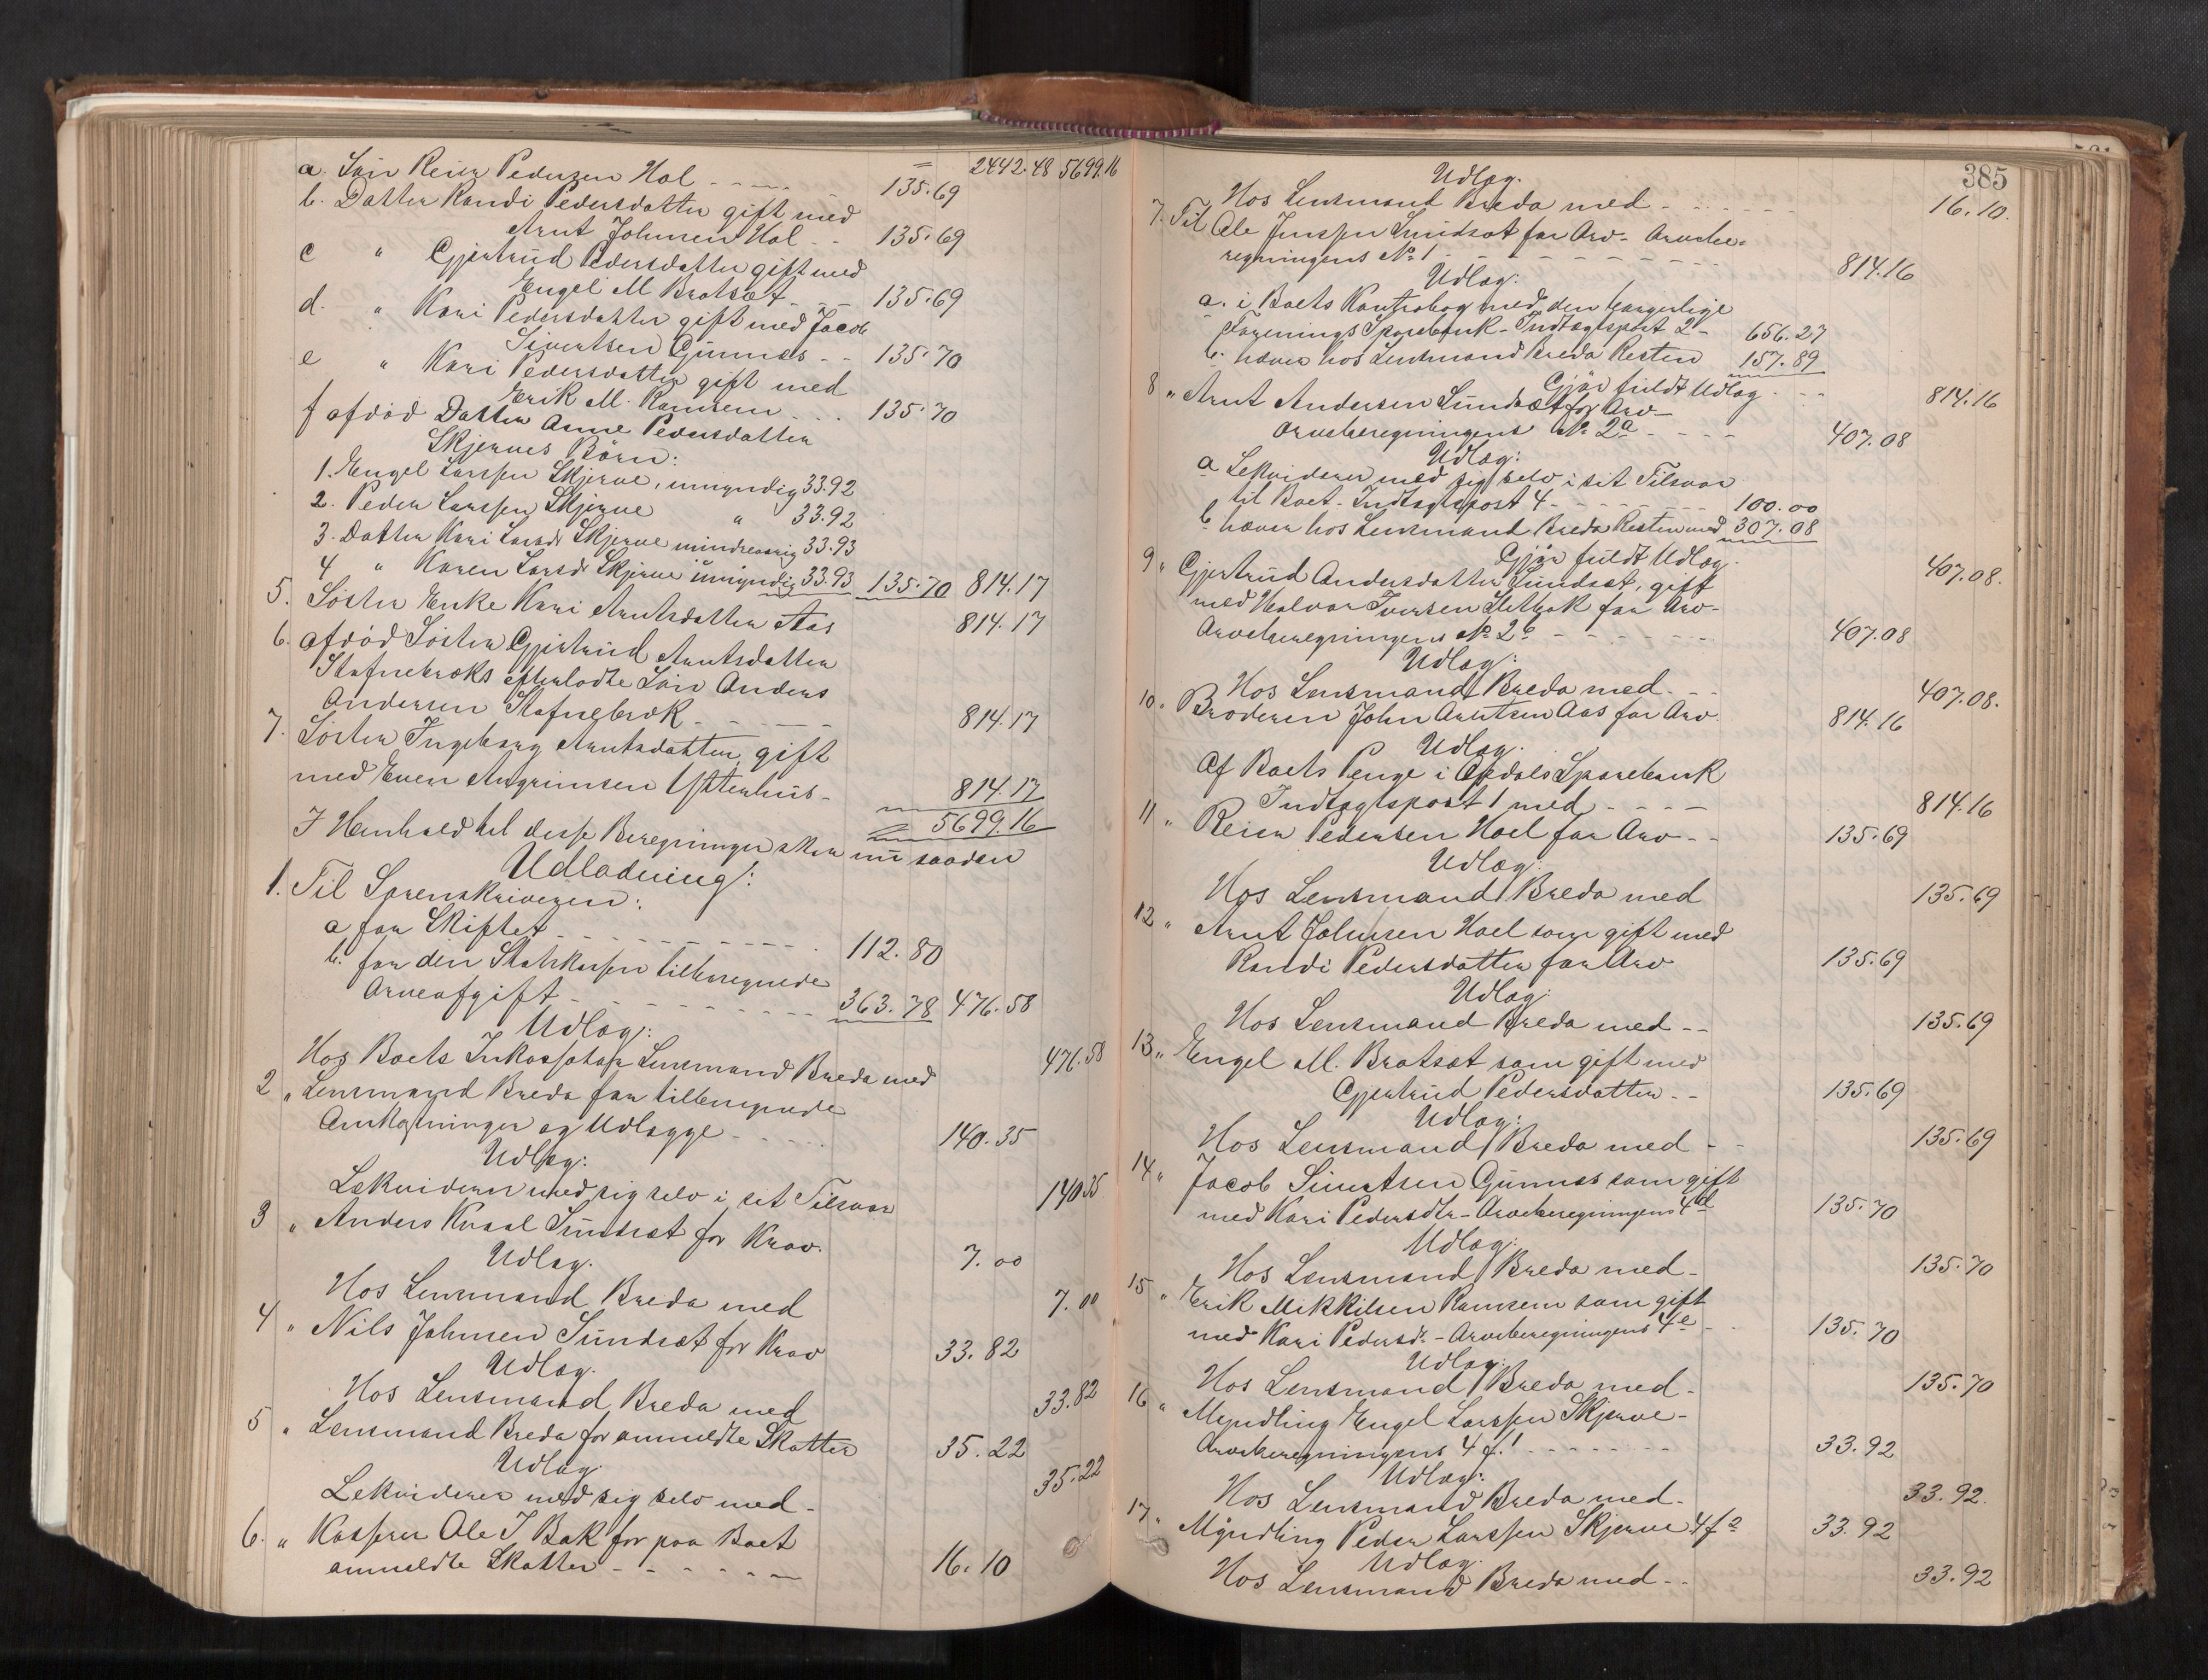 = 2442.48 5699.16
a. Søn Reier Pedersen Hol - - - - - 135.69
b. Datter Randi Pedersdatter gift med
Arnt Johnsen Hol - - 135.69
c " Gjertrud Pedersdatter gift med
Engel M Bratsæt - - - 135.69
d. " Kari Pedersdatter gift med Jacob
Sivertsen Gunnes - - 135.70
e " Kari Pedersdatter gift med
Erik M. Ramsem - - - 135.70
f afdød Datter Anne Pedersdatter
Skjerves Börn:
1. Engel Larssen Skjerve, umyndig 33.92
2. Peder Larssen Skjerve " 33.92
3. Datter Kari Larsdr Skjerve mindreaarig 33.93
4 " Karen Larsdr Skjerve umyndig 33.93 135.70 814.17
5. Søster Enke Kari Arntsdatter Aas 814.17
6. afdød Søster Gjertrud Arntsdatter
Stafnebræks efterladte Søn Anders
Andersen Stafnebræk - - - - - 814.17
7. Søster Ingeborg Arntsdatter, gift
med Even Angrimsen Ystenhus - 814.17
5699.16
I Henhold til disse Beregninger sker nu saadan
Udlodning:
1. Til Sorenskriveren:
a for Skiftet - - - - - - - - - - 112.80
b. for den Statskassen tilberegnede
Arveafgift - - - - - - - - 363.78 476.58
Udlæg:
Hos Boets Inkassator Lensmand Breda med 476.58
2 " Lensmand Breda for tilberegnede
Omkostninger og Udlægge - - - - - 140.35
Udlæg:
Lekviderer med sig selv i sit Tilsvar 140.35
3 " Anders Knaal Sundsæt for Krav. 7.00
Udlæg.
Hos Lensmand Breda med 7.00
4 " Nils Johnsen Sundsæt for Krav 33.82
Udlæg.
Hos Lensmand Breda med 33.82
5 " Lensmand Breda for anmeldte Skatter 35.22
Udlæg.
Lekviderer med sig selv med - 35.22
6. " Kasserer Ole J Bak for paa Boet
anmeldte Skatter - - - - - - 16.10
385
Udlæg.
Hos Lensmand Breda med - - - - - - - 16.10.
7. Til Ole Jenssen Sundsæt for Arv - Arvebe-
regningens No 1 - - - - - - - - - 814.16
Udlæg:
a. i Boets Kontrabog med den borgerlige
Forenings Sparebank - Indtægtspost 2 - 656.27
b. hæver hos Lensmand Breda Resten 157.89
Gjør fuldt Udlæg - - - 814.16
8 " Arnt Andersen Sundsæt for Arv -
Arveberegningens No 2a - - - - 407.08
Udlæg:
a Lekviderer med sig selv i sit Tilsvar
til Boet - Indtægtspost 4 - - - - - - - 100.00
b hæver hos Lensmand Breda Resten med 307.08
Gjør fuldt Udlæg. 407.08.
9 " Gjertrud Andersdatter Sundsæt, gift
med Halvor Iversen Sletbak for Arv -
Arveberegningens No 2b - - - - - - - 407.08
Udlæg:
Hos Lensmand Breda med - - - 407.08.
10 " Broderen John Arntsen Aas for Arv. 814.16
Udlæg.
Af Boets Penge i Opdals Sparebank
Indtægtspost 1 med - - - - - 814.16
11 " Reier Pedersen Hoel for Arv - - 135.69
Udlæg:
Hos Lensmand Breda med 135.69
12 " Arnt Johnsen Hoel som gift med
Randi Pedersdatter for Arv 135.69
Udlæg:
Hos Lensmand Breda med - - 135.69
13 " Engel M. Bratsæt som gift med
Gjertrud Pedersdatter - - 135.69
Udlæg:
Hos Lensmand Breda med - - 135.69
14 " Jacob Sivertsen Gunnes som gift
med Kari Pedersdtr - Arveberegningens 4d 135.70
Udlæg:
Hos Lensmand Breda med - 135.70
15 " Erik Mikkilsen Ramsem som gift
med Kari Pedersdr. - Arveberegningens 4e - 135.70
Udlæg:
Hos Lensmand Breda med - 135.70
16 " Myndling Engel Larssen Skjerve -
Arveberegningens 4 f.1 - - - - - - - 33.92
Udlæg:
Hos Lensmand Breda med - 33.92.
17 " Myndling Peder Larssen Skjerve 4f2 33.92
Udlæg.
Hos Lensmand Breda med - - 33.92